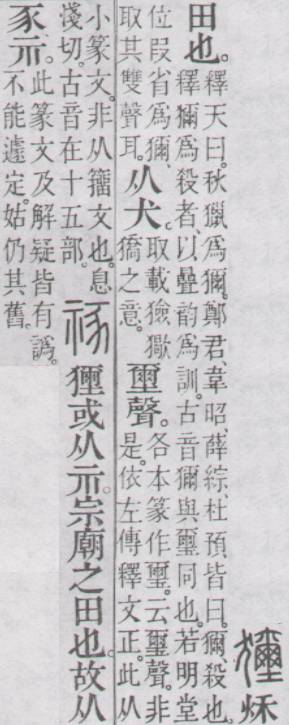 獮秌
田也。釋天曰。秋獵爲獮。鄭君、韋昭、薛綜、杜預皆曰。獮殺也。釋獮爲殺者、以疊韵爲訓。古音獮與壐同也。若明堂
位叚省爲獮、取其雙聲耳。从犬。取載獫猲獢之意。壐聲。各本篆作璽。云璽聲。非是。依左傳釋文正。此从
小篆文。非从籒文也。息淺切。古音在十五部。𥙊獮或从示。宗廟之田也。故从
豕示。此篆文及解疑皆有譌。不能遽定。姑仍其舊。